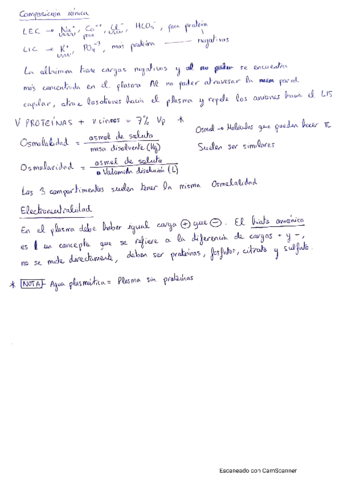 Composición iónica
LEC → Na⁺, Ca⁺⁺, Cl⁻, HCO₃⁻, poca proteína
LIC → K⁺, PO₄⁻³, mas proteína negativas
La albúmina tiene cargas negativas y al no poder se encuentra
más concentrada en el plasma. Al no poder atravesar la pared
capilar, atrae los cationes hacia el plasma y repele los aniones hacia el LIS
V PROTEÍNAS + = 7% Vp *
Osmolalidad = osmol de soluto / masa disolvente (Kg)
Osmol → Moléculas que pueden hacer π
Osmolaridad = osmol de soluto / Volumen disolución (L)
Suelen ser similares
Los 3 compartimentos suelen tener la misma Osmolalidad
Electroneutralidad
En el plasma debe haber igual carga + que -. El hiato aniónico
es un concepto que se refiere a la diferencia de cargas + y -,
no se mide directamente, deben ser proteínas, fosfatos, citrato y sulfato.
* NOTA - Agua plasmática = Plasma sin proteínas
Escaneado con CamScanner